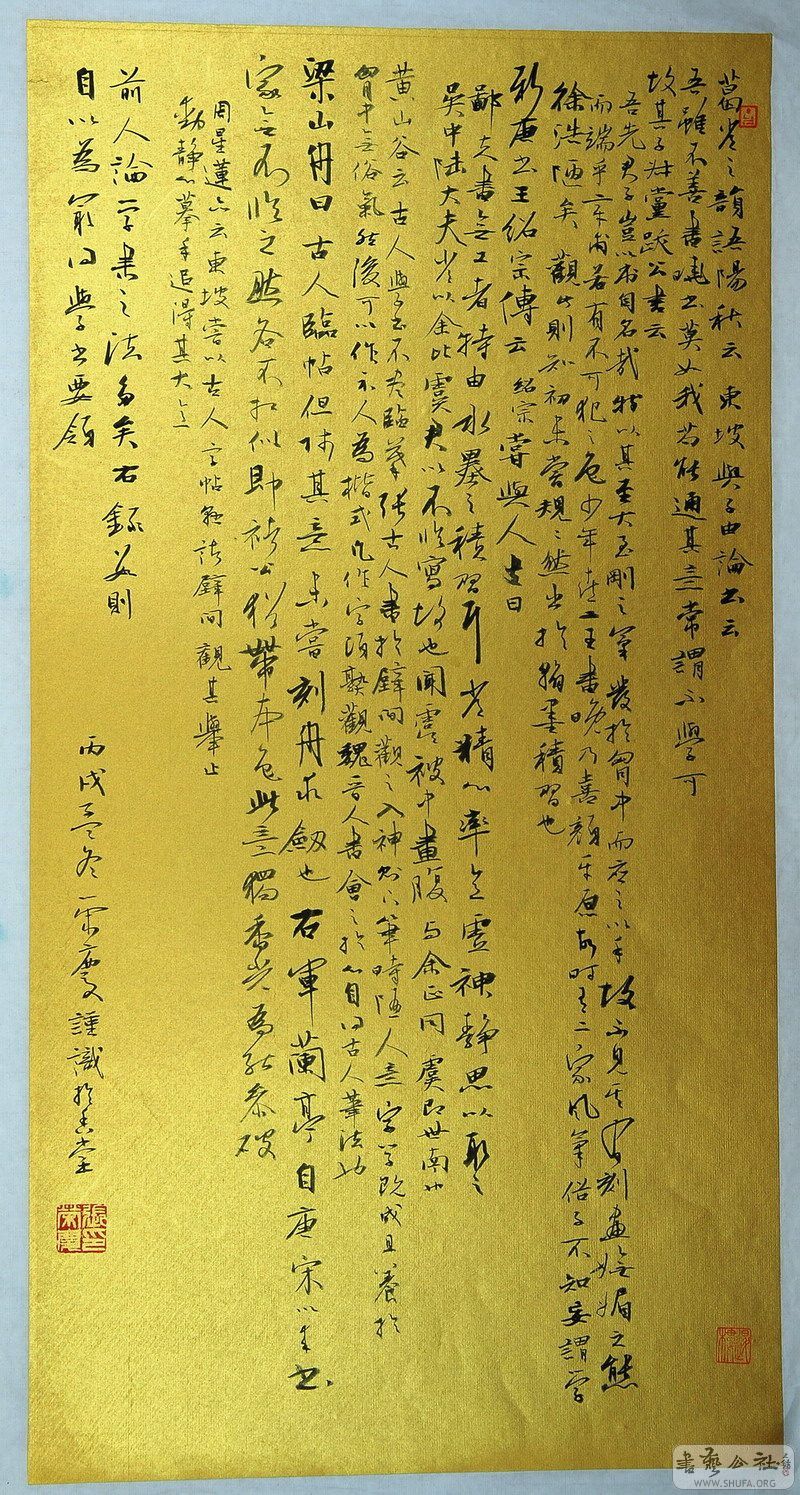 葛常之韻語陽秋云東坡與子由論書云
吾雖不善書曉書莫如我苟能通其意常謂不學可
故其子叔黨跋公書云
吾先君子豈以書自名哉特以其至大至剛之氣發於胸中而應之以手故不見其有刻畫嫵媚之態
而端乎章甫若有不可犯之色少年喜二王書晚乃喜顏平原故時有二家風氣俗子不知妄謂學
徐浩陋矣觀此則知初未嘗規規然出於翰墨積習也
新唐書王紹宗傳云紹宗嘗與人書曰
鄙夫書無工者特由水墨之積習耳常精心率意虛神靜思以取之
吳中陸大夫常以余比虞君以不臨寫故也聞虞被中畫腹與余正同虞即世南也
黃山谷云古人學書不盡臨摹張古人書於壁間觀之入神則下筆時隨人意字學既成且養於
胸中無俗氣然後可以作示人為楷式凡作字須熟觀魏晉人書會之於心自得古人筆法也
梁山舟曰古人臨帖但師其意未嘗刻舟求劍也右軍蘭亭自唐宋以來書
家無不臨之然各不相似即褚公猶帶本色此意獨香光為能參破
周星蓮亦云東坡嘗以古人字帖懸諸壁間觀其舉止
動靜心摹手追得其大意
前人論學書之法多矣右錄數則
自以為最得學書要領
丙戌孟冬榮慶謹識於
書藝公社
WWW.SHUFA.ORG